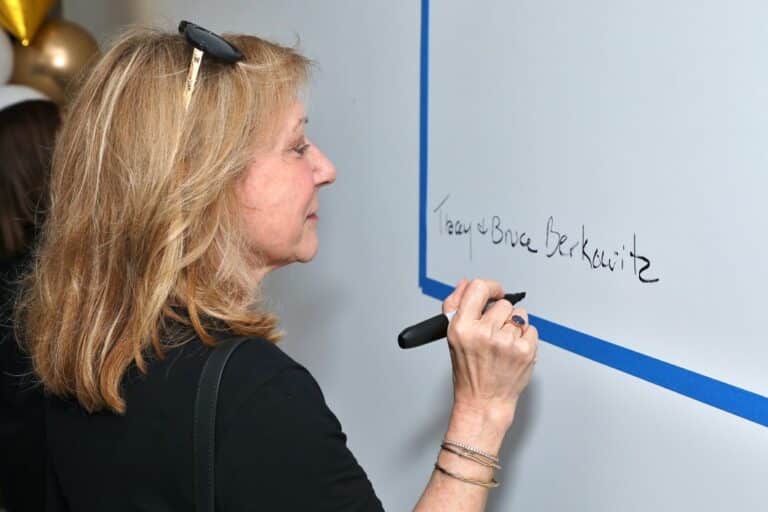 Tracy & Bruce Berkowitz